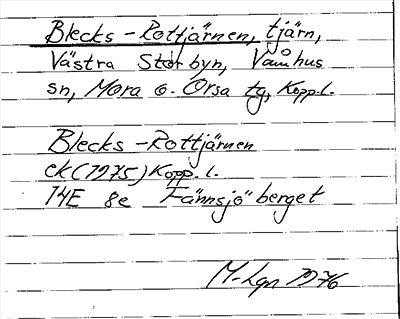 Blecks-Rottjärnen, tjärn,
Västra Storbyn, Våmhus
sn, Mora o. Orsa tg, Kopp.l.
Blecks-Rottjärnen
ek (1975) Kopp. l.
14E 8e Fännsjöberget
M-Lgn 1976